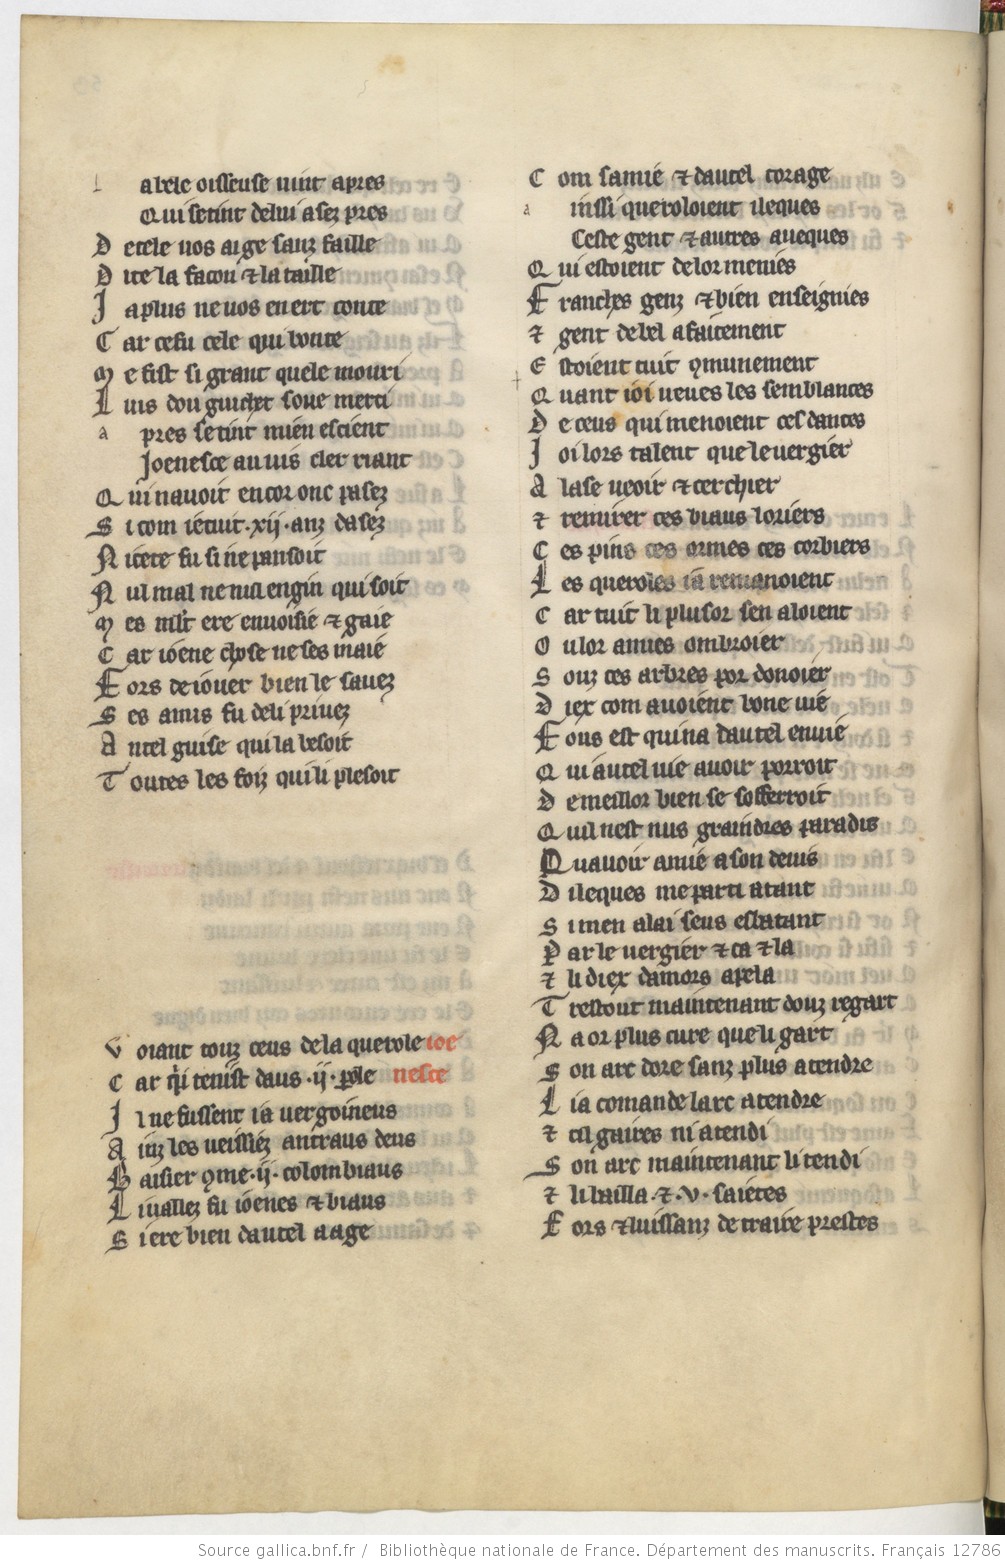 l a bele oisseuse vint apres
Qui se tint de lui asez pres
D e cele vos ai ge sanz faille
D ite la facon ⁊ la taille
J a plus ne vos en ert conte
C ar ce fu cele qui bonte
M e fist si grant quele mouri
L uis dou guichet soue merci
a pres se tint mien escient
Joenesce au vis cler riant
Q ui navoit encor onc pasez
S i com ie cuit .xij. anz dasez
N icete fu si ne pansoit
N ul mal ne nul engin qui soit
M es mlt ere envoisie ⁊ gaie
C ar ioene chose ne ses maie
F ors de iouer bien le savez
S es amis fu de li privez
A ntel guise qui la besoit
T outes les foiz qui li plesoit
V oiant touz ceus de la querole ioe
C ar qi tenist daus .ij. pole nesce
J l ne fussent ia vergoineus
A inz les veissiez antraus deus
B aisier ꝯme .ij. colombiaus
L i vallez fu ioenes ⁊ biaus
S i ere bien dautel aage
C om samie ⁊ dautel corage
a inssi queroloient ileques
Ceste gent ⁊ autres aueques
Q ui estoient de lor menies
F ranches genz ⁊ bien enseignies
⁊ gent de bel afaitement
E stoient tuit ꝯmunement
Q uant ioi veues les semblances
D e ceus qui menoient ces dances
J oi lors talent que le vergier
A lase veoir ⁊ cerchier
⁊ remirer ces biaus loriers
C es pins ces ormes ces corbiers
L es queroles ia remanoient
C ar tuit li plusor sen aloient
O u lor amies ombroier
S ouz ces arbres por donoier
D iex com avoient bone vie
F ous est qui na dautel envie
Q ui autel vie avoir porroit
D e meillor bien se sofferroit
Q uil nest nus graindres paradis
Q uavoir amie a son devis
D ileques me parti atant
S i men alai seus esbatant
P ar le vergier ⁊ ca ⁊ la
⁊ li diex damors apela
T restout maintenant douz regart
N a or plus cure que li gart
S on arc dore sanz plus atendre
L i a comande larc a tendre
⁊ cil gaires ni atendi
S on arc maintenant li tendi
⁊ li bailla .⁊. v. saietes
F ors ⁊ luissanz de traire prestes
Source gallica.bnf.fr / Bibliothèque nationale de France. Département des manuscrits. Français 12786